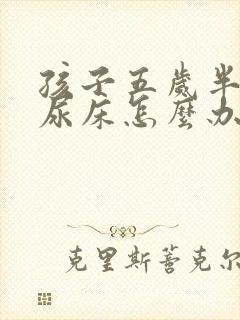 孩子五歲半
尿床怎麼办
克里斯蒂克尔